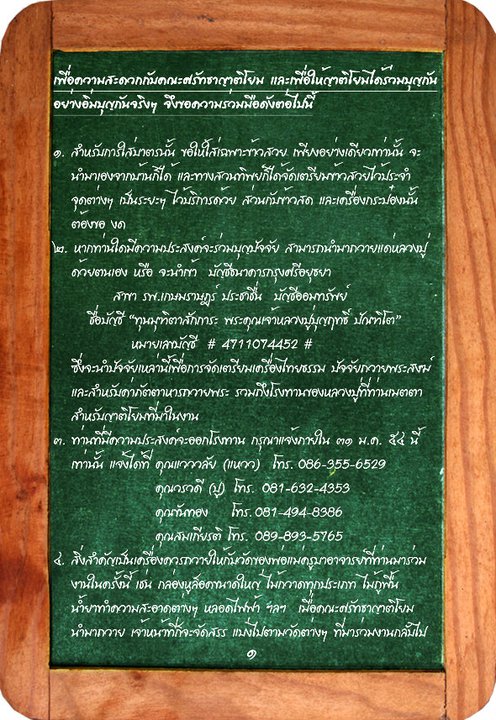 เพื่อความสะดวกกับคณะศรัทธาญาติโยม และเพื่อให้ญาติโยมได้ร่วมบุญกัน
อย่างอิ่มบุญกันจริงๆ จึงขอความร่วมมือดังต่อไปนี้
๑. สำหรับการใส่บาตรนั้น ขอให้ใส่เฉพาะข้าวสวย เพียงอย่างเดียวเท่านั้น จะ
นำมาเองจากบ้านก็ได้ และทางสวนทิพย์ก็ได้จัดเตรียมข้าวสวยไว้ประจำ
จุดต่างๆ เป็นระยะๆ ไว้บริการด้วย ส่วนกับข้าวสด และเครื่องกระป๋องนั้น
ต้องขอ งด
๒. หากท่านใดมีความประสงค์จะร่วมบุญปัจจัย สามารถนำมาถวายแด่หลวงปู่
ด้วยตนเอง หรือ จะนำเข้า บัญชีธนาคารกรุงศรีอยุธยา
สาขา รพ.เกษมราษฎร์ ประชาชื่น บัญชีออมทรัพย์
ชื่อบัญชี “ทุนมุทิตาสักการะ พระคุณเจ้าหลวงปู่บุญฤทธิ์ ปัณฑิโต”
หมายเลขบัญชี # 4711074452 #
ซึ่งจะนำปัจจัยเหล่านี้เพื่อการจัดเตรียมเครื่องไทยธรรม ปัจจัยถวายพระสงฆ์
และสำหรับค่าภัตตาหารถวายพระ รวมถึงโรงทานของหลวงปู่ที่ท่านเมตตา
สำหรับญาติโยมที่มาในงาน
๓. ท่านที่มีความประสงค์จะออกโรงทาน กรุณาแจ้งภายใน ๓๑ ม.ค. ๕๔ นี้
เท่านั้น แจ้งได้ที่ คุณแวววลัย (แหวว) โทร. 086-355-6529
คุณวรวดี (ปู) โทร. 081-632-4353
คุณขันทอง โทร. 081-494-8386
คุณสมเกียรติ โทร. 089-893-5765
๔. สิ่งสำคัญเป็นเครื่องควรถวายให้กับวัดของพ่อแม่ครูบาอาจารย์ที่ท่านมาร่วม
งานในครั้งนี้ เช่น กล่องหูล็อคขนาดใหญ่ ไม้กวาดทุกประเภท ไม้ถูพื้น
น้ำยาทำความสะอาดต่างๆ หลอดไฟฟ้า ฯลฯ เมื่อคณะศรัทธาญาติโยม
นำมาถวาย เจ้าหน้าที่ก็จะจัดสรร แบ่งไปตามวัดต่างๆ ที่มาร่วมงานกลับไป
๑